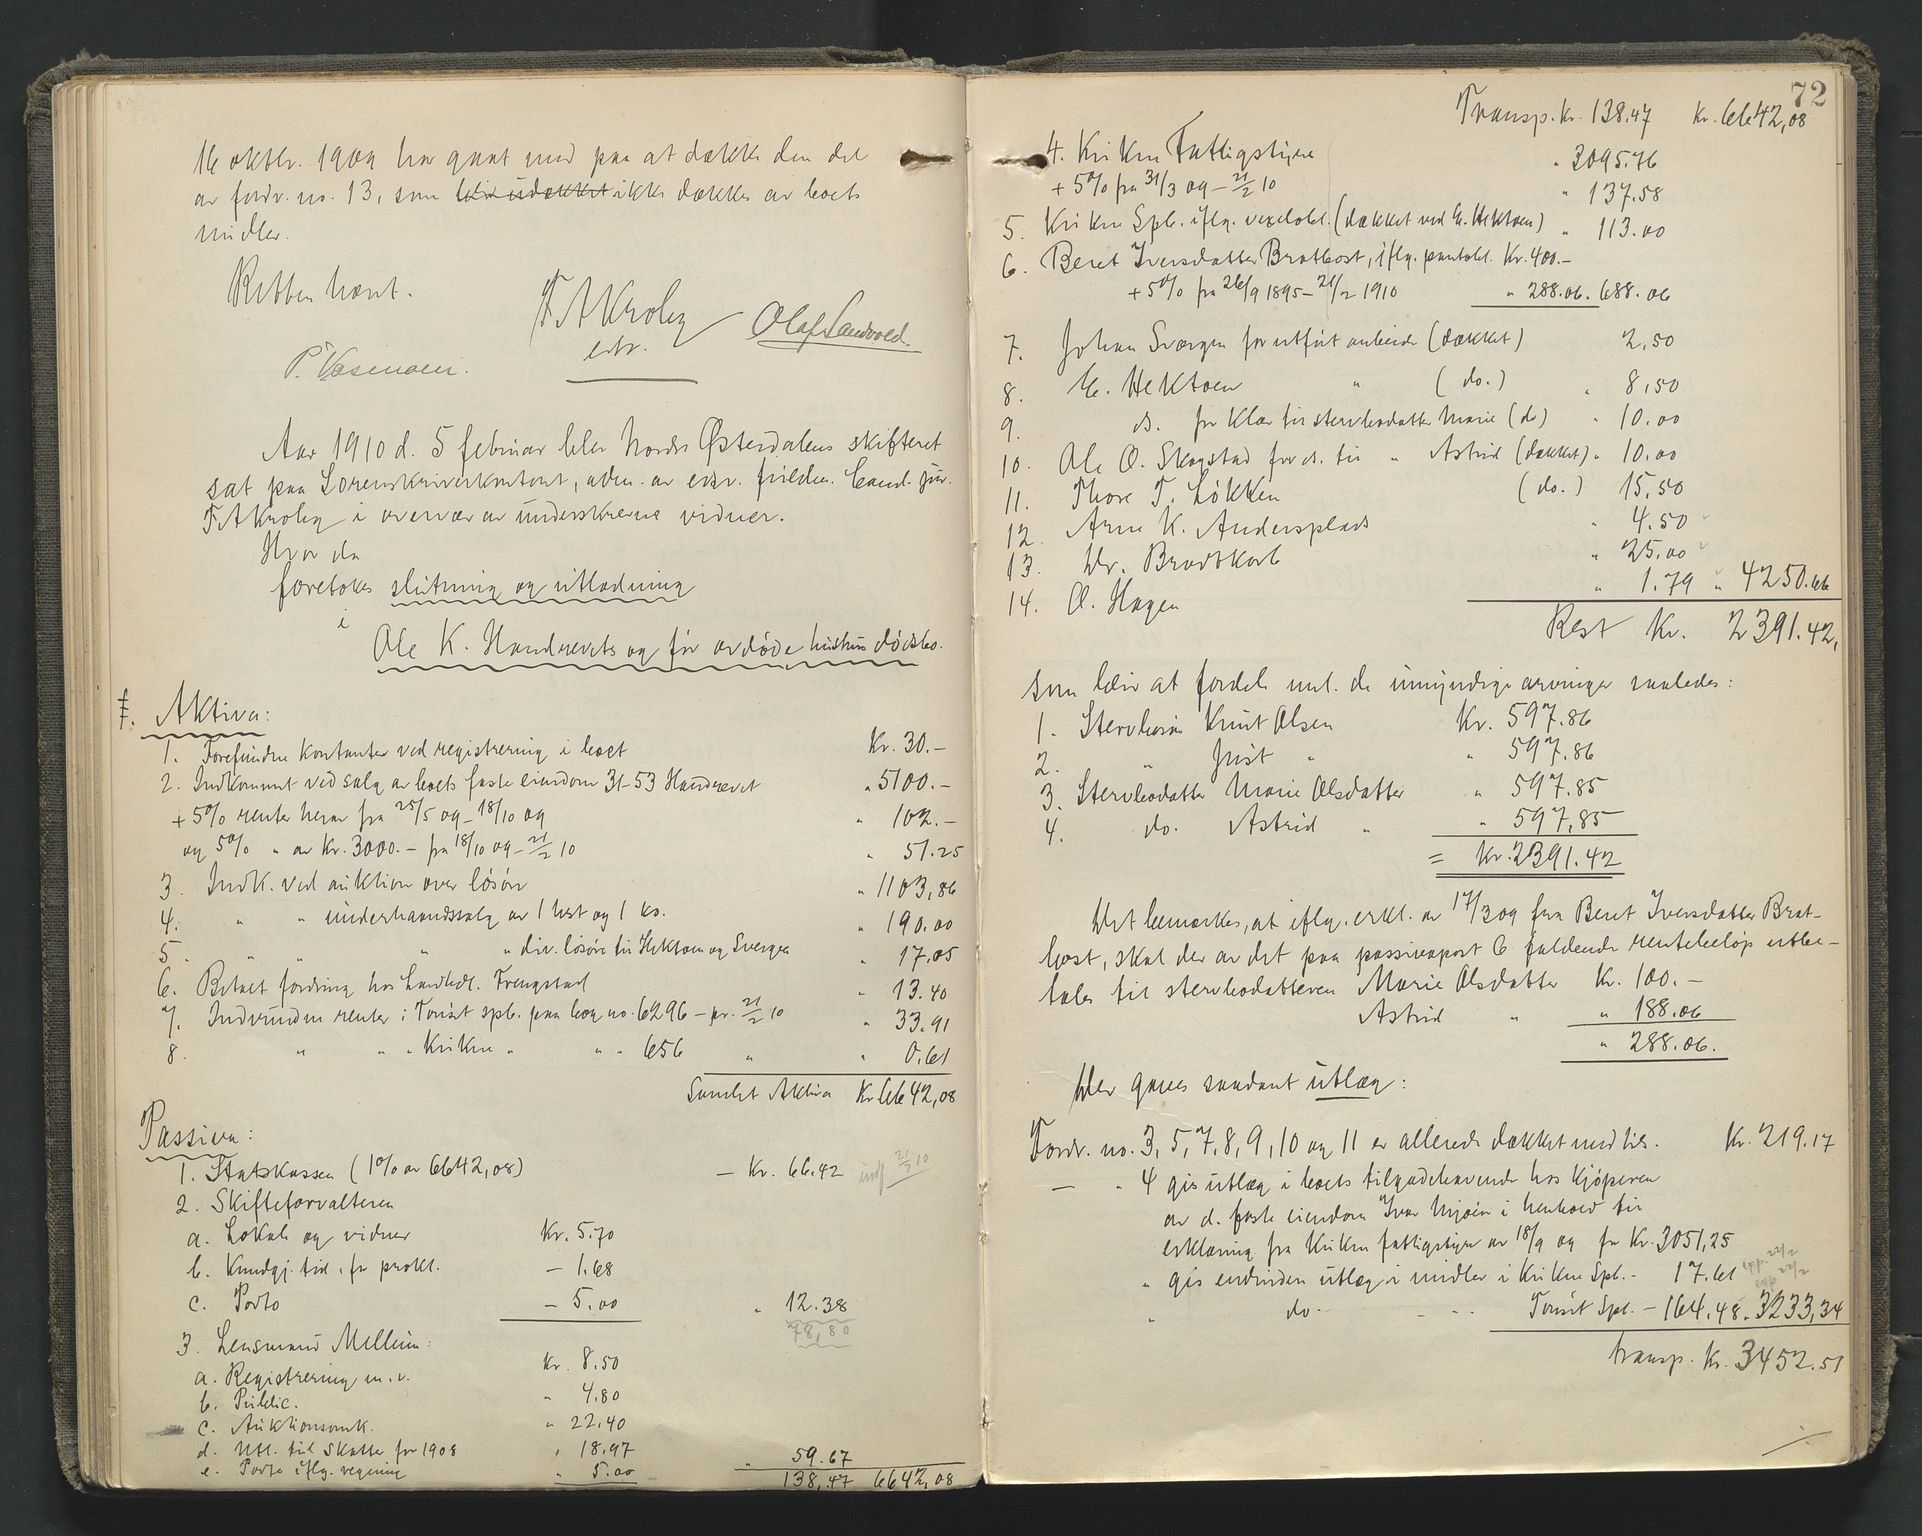 16 oktbr. 1909 har gaat med paa at dække den del
av fordr. no. 13, som blir udækket ikke dækkes av boets
midler.
Retten hævet.
F. A. Krohg
P. Væsenøen.
Olaf Sandvold.
Aar 1910 d. 5 februar blev Nordre Østerdalens skifteret
sat paa Sorenskriverkontoret, adm. av edsv. fuldm. Cand. jur.
F. A. Krohg i overvær av underskrevne vidner.
Hvor da
foretokes slutning og utlodning
i
Ole K. Handrevets og før avdøde hustrus dødsbo.
Aktiva:
1. Forefundne kontanter ved registrering i boet Kr. 30.–
2. Indkommet ved salg av boets faste eiendom 31-53 Handrevet " 5100.–
+ 5% renter herav fra 25/5 09 – 18/10 09 " 102.–
og 5% " av Kr. 3000.– fra 18/10 09 – 21/2 10 " 51.25
3. Indk. ved auktion over løsøre " 1103,86
4. " " underhaandssalg av 1 hest og 1 ko. " 190.00
5. " " " " div. løsøre til Hektoen og Sværgen " 17.05
6. Betalt fordring hos Landhdl. Trengstad " 13.40
7. Indvundne renter i Tønset spb. paa bog no. 6296 – pr. 21/2 10 " 33.91
8. " " " Kvikne " " " 656 " " 0.61
Samlet Aktiva Kr. 6642,08
Passiva:
1. Statskassen (1% av 6642,08) – Kr. 66.42 indf 21/2 10
2. Skifteforvalteren
a. Lokale og vidner Kr. 5.70
b. Kundgj. tid. for prokl. – 1.68
c. Porto – 5.00 " 12.38
78,80
3. Lensmand Melleim:
a. Registrering m. v. Kr. 8.50
b. Public. " 4.80
c. Auktionsomk. " 22.40
d. Utl. til skatte for 1908 " 18.97
e. Porto iflg. regning " 5.00 " 59.67
138,47 6642,08
72
Transp. Kr. 138.47 Kr. 6642,08
4. Kvikne Fattigstyre " 3095.76
+ 5% fra 31/3 09 – 21/2 10 " 137.58
5. Kvikne Spb. iflg. vexelobl. (dækket ved E. Hektoen) " 113.00
6. Beret Iversdatter Bratbost, iflg. pantobl. Kr. 400.–
+ 5% fra 26/9 1895 – 21/2 1910 " 288.06. 688.06
7. Johan Sværgen for utført arbeide (dækket) 2,50
8. E. Hektoen " (do.) " 8,50
9. ds. for klær til stervbodatter Marie (do) " 10.00
10. Ole O. Skogstad for ds. til " Astrid (dækket) " 10.00
11. Thore T. Løkken (do.) 15,50
12. Arne K. Andersplads " 4.50
13. Dr. Brodtkorb " 25.00
14. O. Hagen " 1.79 " 4250.66
Rest Kr. 2391.42,
som blir at fordele mel. de umyndige arvinger saaledes:
1. Stervbosøn Knut Olsen Kr. 597.86
2. " Just " " 597.86
3. Stervbodatter Marie Olsdatter " 597.85
4. do. Astrid " " 597,85
= Kr. 2391.42
Det bemærkes, at iflg. erkl. av 17/3 09 fra Beret Iversdatter Brat-
bost, skal der av det paa passivapost 6 faldende rentebeløp utbe-
tales til stervbodatteren Marie Olsdatter Kr. 100.–
Astrid " " 188.06
" 288.06.
Der gaves saadant utlæg:
Fordr. no. 3, 5, 7, 8, 9, 10 og 11 er allerede dækket med tils. Kr. 219.17
— " 4 gis utlæg i boets tilgodehavende hos kjøperen
av d. faste eiendom Ivar Mjøen i henhold til
erklæring fra Kvikne fattigstyre av 18/9 09 for Kr. 3051,25
" gis endvidere utlæg i midler i Kvikne Spb. – 17.61 exp. 22/2
" do. – " – Tønset Spb. – 164.48. 3233,34
transp. Kr. 3452.51